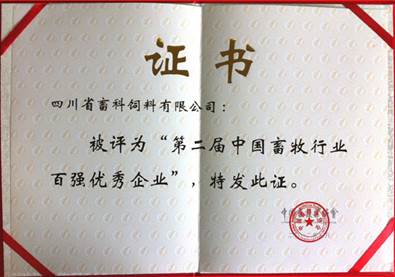 证书
四川省畜科饲料有限公司：
被评为“第二届中国畜牧行业
百强优秀企业”，特发此证。